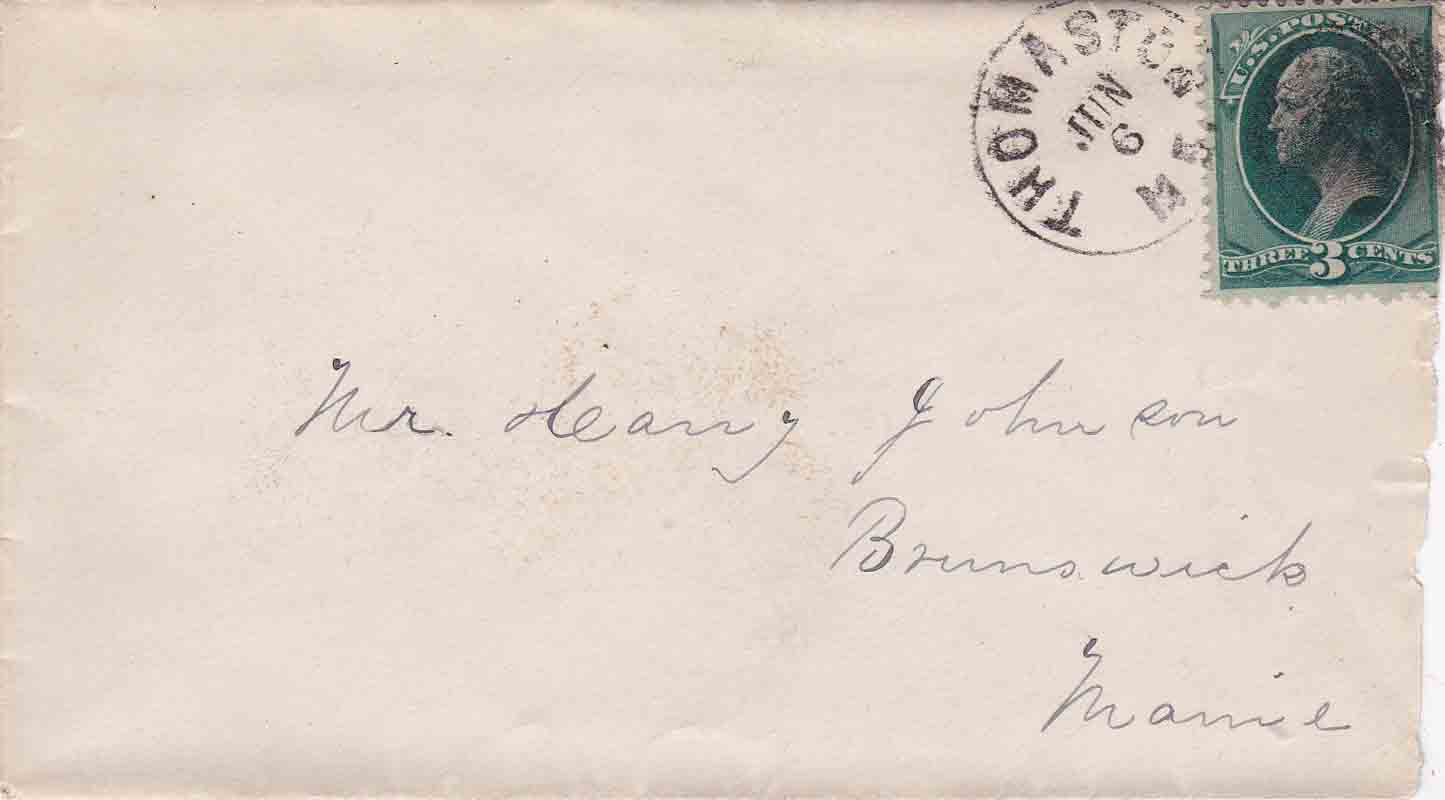 THOMASTON
JUN
6
ME.
U.S. POSTAGE
THREE 3 CENTS
Mr. Harry Johnson
Brunswick
Maine